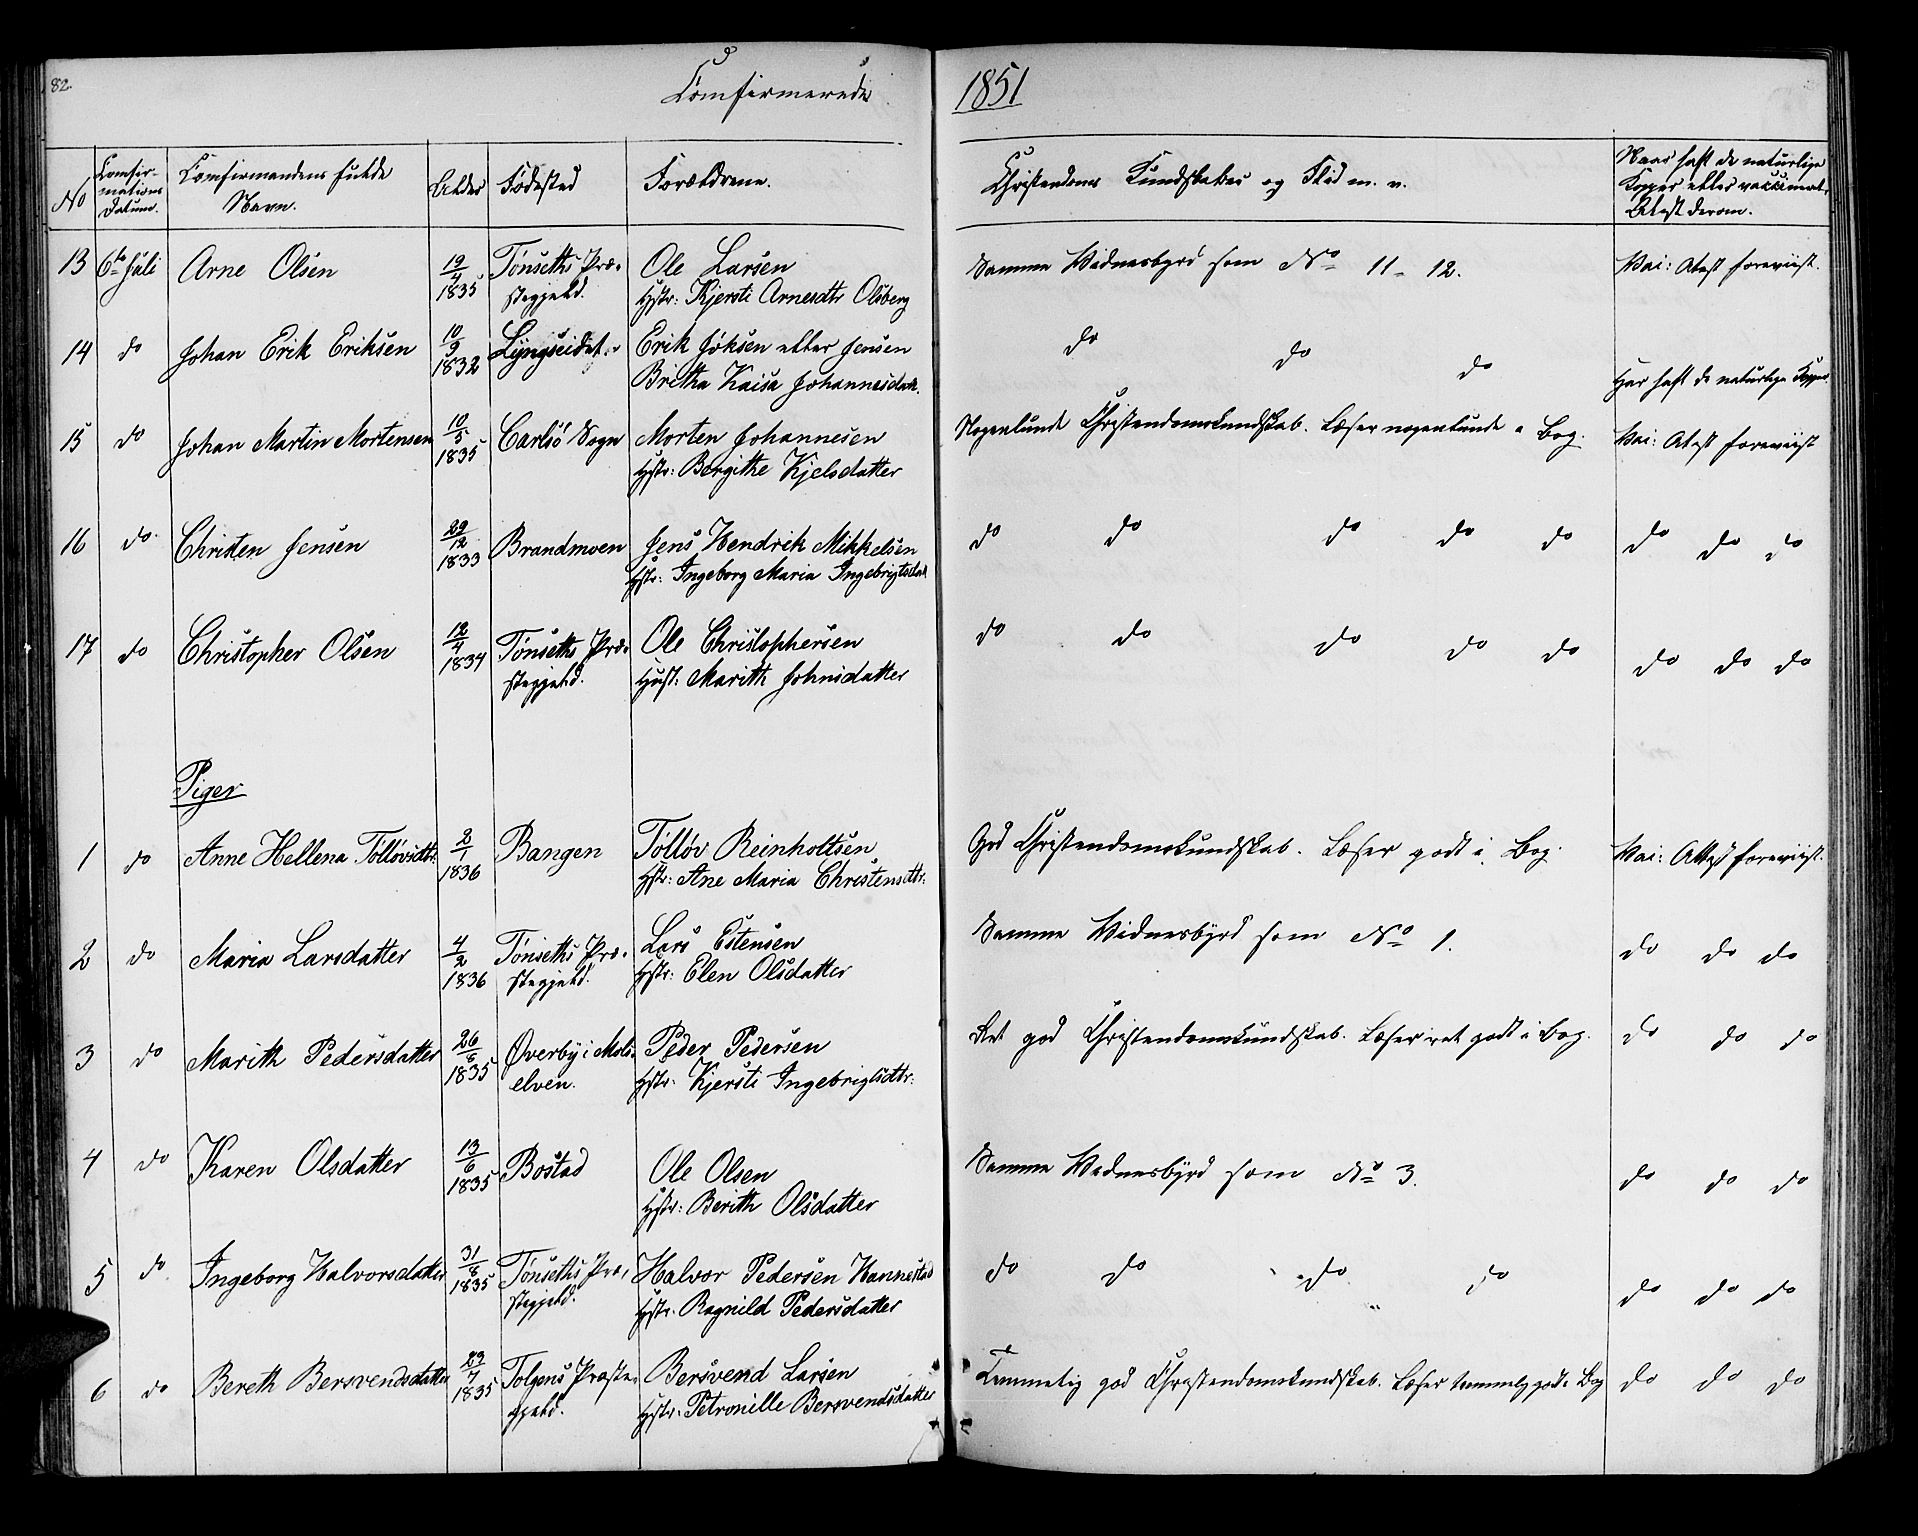 82.
Confirmerede
1851
No
Confir-
mations
Datum.
Confirmandens fulde
Navn.
Alder
Födested
Forældrene.
Christendoms Kundskaber og Flid m. v.
Naar haft de naturlige
Kopper eller vaccineret,
Attest derom.
13 6te Juli Arne Olsen 19/4 1835 Tönsets Præ-
stegjeld.
Ole Larsen
Hstr: Kjersti Arnesdtr Olsberg
Samme Vidnesbyrd som No 11 - 12.
Vai: Atest foreviist.
14 do Johan Erik Eriksen 10/9 1832 Lyngseidet
Erik Jöksen eller Jensen
Britha Kaisa Johannesdatr.
do do do
Har haft de naturlige Kopper
15 do Johan Martin Mortensen 10/5 1835 Carlsö Sogn
Morten Johannesen
Hstr: Bergithe Kjelsdatter
Nogenlunde Christendomskundskab. Læser nogenlunde i Bog.
Vai: Atest foreviist
16 do Christen Jensen 29/12 1833 Brandmoen
Jens Hendrik Mikkelsen
Hstr: Ingeborg Maria Ingebrigtsdat
do do do do do
do do do
17 do Christopher Olsen 12/4 1834 Tönsets Præ-
stegjeld.
Ole Christophersen
Hust: Marith Johnsdatter
do do do do do
do do do
Piger
1 do Anne Hellena Töllövsdtr: 2/1 1836 Bangen
Töllöv Reinholtsen
Hstr: Ane Maria Christensdtr:
God Christendomskundskab. Læser godt i Bog.
Vai: Attest foreviist.
2 do Maria Larsdatter 4/2 1836 Tönsets Præ-
stegjeld.
Lars Estensen
Hstr: Elen Olsdatter
Samme Vidnesbyrd som No 1.
do do do
3 do Marith Pedersdatter 26/8 1835 Øverby i Mals-
elven.
Peder Pedersen
Hstr: Kjersti Ingebrigtsdtr:
Ret god Christendomskundskab. Læser ret godt i Bog.
do do do
4 do Karen Olsdatter 13/6 1835 Bostad
Ole Olsen
Hstr: Berith Olsdatter
Samme Vidnesbyrd som No 3.
do do do
5 do Ingeborg Halvorsdatter 31/8 1835 Tönsets Præ-
stegjeld.
Halvor Pedersen Hannestad
Hstr: Ragnild Pedersdatter
do do do do
do do do
6 do Bereth Bersvendsdatter 23/7 1835 Tolgens Præste-
gjeld.
Bersvend Larsen
Hstr: Petronille Bersvendsdatter
Temmelig god Christendomskundskab. Læser temmelig godt i Bog
do do do